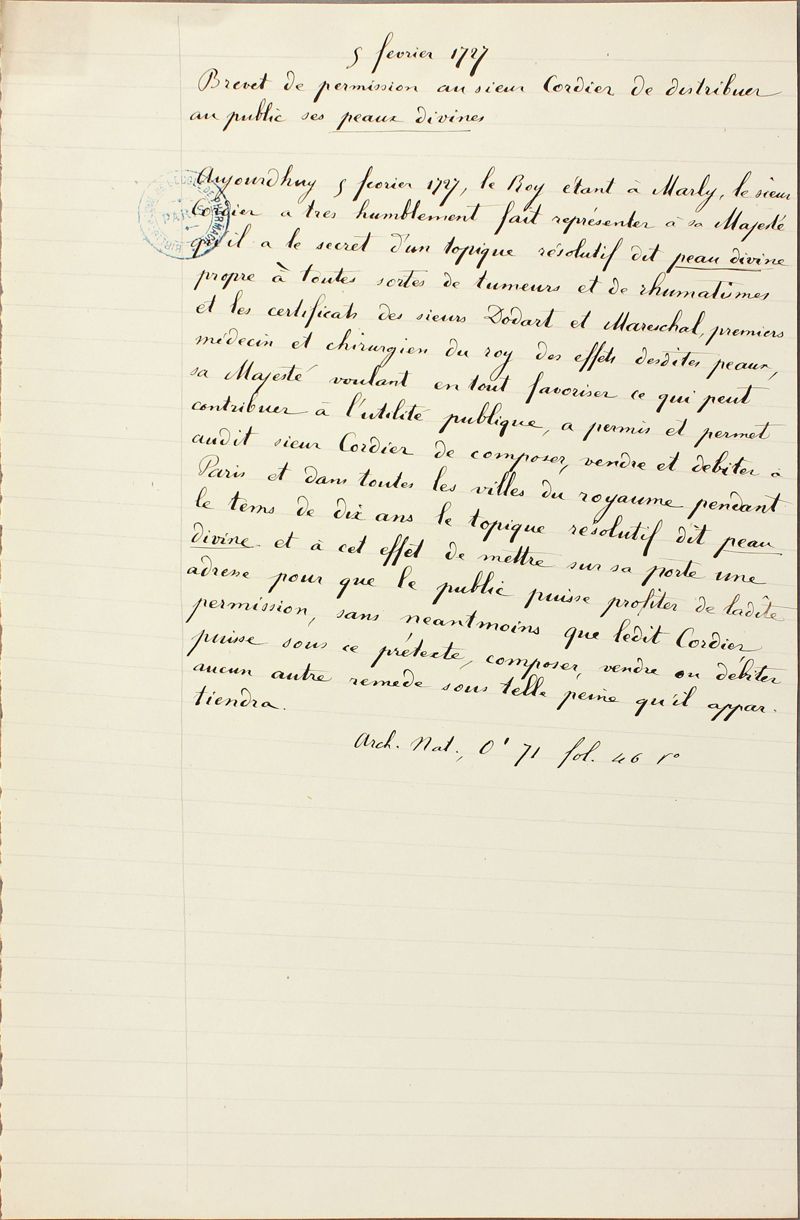 5 fevrier 1727
Brevet de permission au sieur Cordier de distribuer
au public ses peaux divines
Aujourdhuy 5 fevrier 1727, le Roy étant à Marly, le sieur
Cordier a tres humblement fait représenter à sa Majesté
qu'il a le secret d'un topique résolutif dit peau divine
propre à toutes sortes de tumeurs et de rhumatismes
et les certificats des sieurs Dodart et Mareschal, premiers
médecin et chirurgien du roy des effets desdites peaux,
sa Majesté voulant en tout favoriser ce qui peut
contribuer à l'utilité publique, a permis et permet
audit sieur Cordier de composer, vendre et debiter à
Paris et dans toutes les villes du royaume pendant
le tems de dix ans le topique résolutif dit peau
divine et à cet effet de mettre sur sa porte une
adresse pour que le public puisse profiter de ladite
permission, sans neantmoins que ledit Cordier,
puisse sous ce prétexte, composer, vendre ou débiter
aucun autre remede sous telle peine qu'il appar-
tiendra.
Arch. Nat., O' 71 fol. 46 r°
BIBLIOTHÈQUE DE L'ECOLE DE PHARMACIE
PARIS